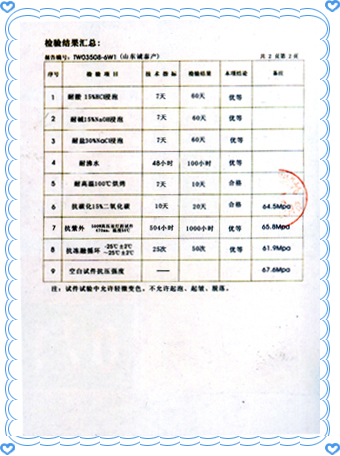 检验结果汇总:
报告编号: TW03508-6W1 (山东诚泰产) 共 2 页第 2 页
序号 检 验 项 目 技 术 指 标 检验结果 本项结论 备注
1 耐酸 15%HCl浸泡 7天 60天 优等
2 耐碱15%NaOH浸泡 7天 60天 优等
3 耐盐30%NaCl浸泡 7天 60天 优等
4 耐沸水 48小时 100小时 优等
5 耐高温100℃烘烤 7天 10天 合格
6 抗碳化15%二氧化碳 10天 20天 合格 64.5Mpa
7 抗紫外 504小时 1000小时 优等 65.8Mpa
8 抗冻融循环 -25℃±2℃ 25次 50次 优等 61.9Mpa
~25℃±2℃
9 空白试件抗压强度 —— 67.6Mpa
注: 试件试验中允许轻微变色。不允许起泡、起皱、脱落。